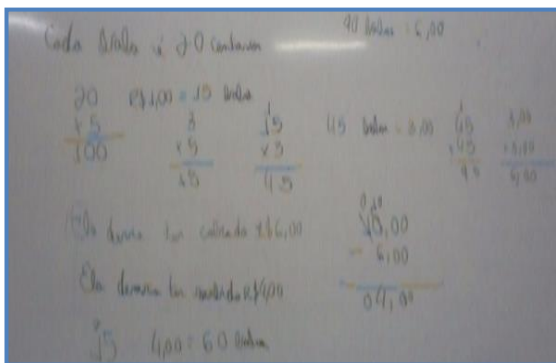 Cada 3 balas é 20 centavos
90 balas = 6,00
20
x 5
100
R$1,00 = 15 balas
3
x 5
15
1
15
x 3
45
45 balas = 3,00
1
45
+45
90
3,00
+3,00
6,00
Ela deveria ter cobrado R$6,00
Ela deveria ter R$4,00
10,00
- 6,00
04,00
15
4,00 = 60 balas